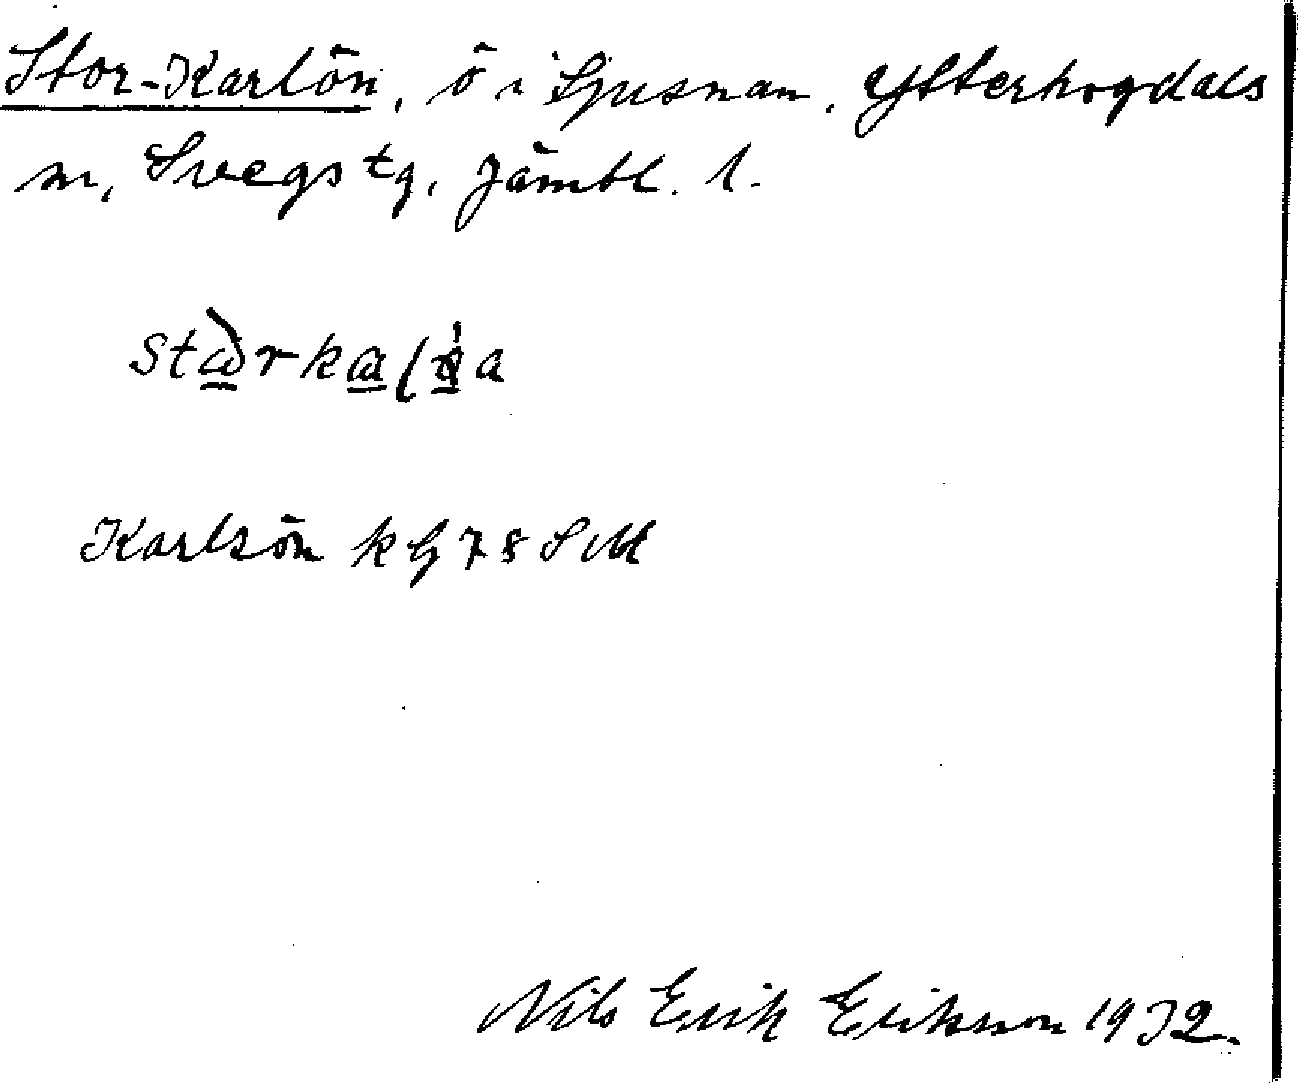 Stor-Karlön, ö i Ljusnan, Ytterhogdals
sn, Svegs tg, Jämtl. l.
Karlsön k G 78 SM
Nils Erik Eriksson 1932.